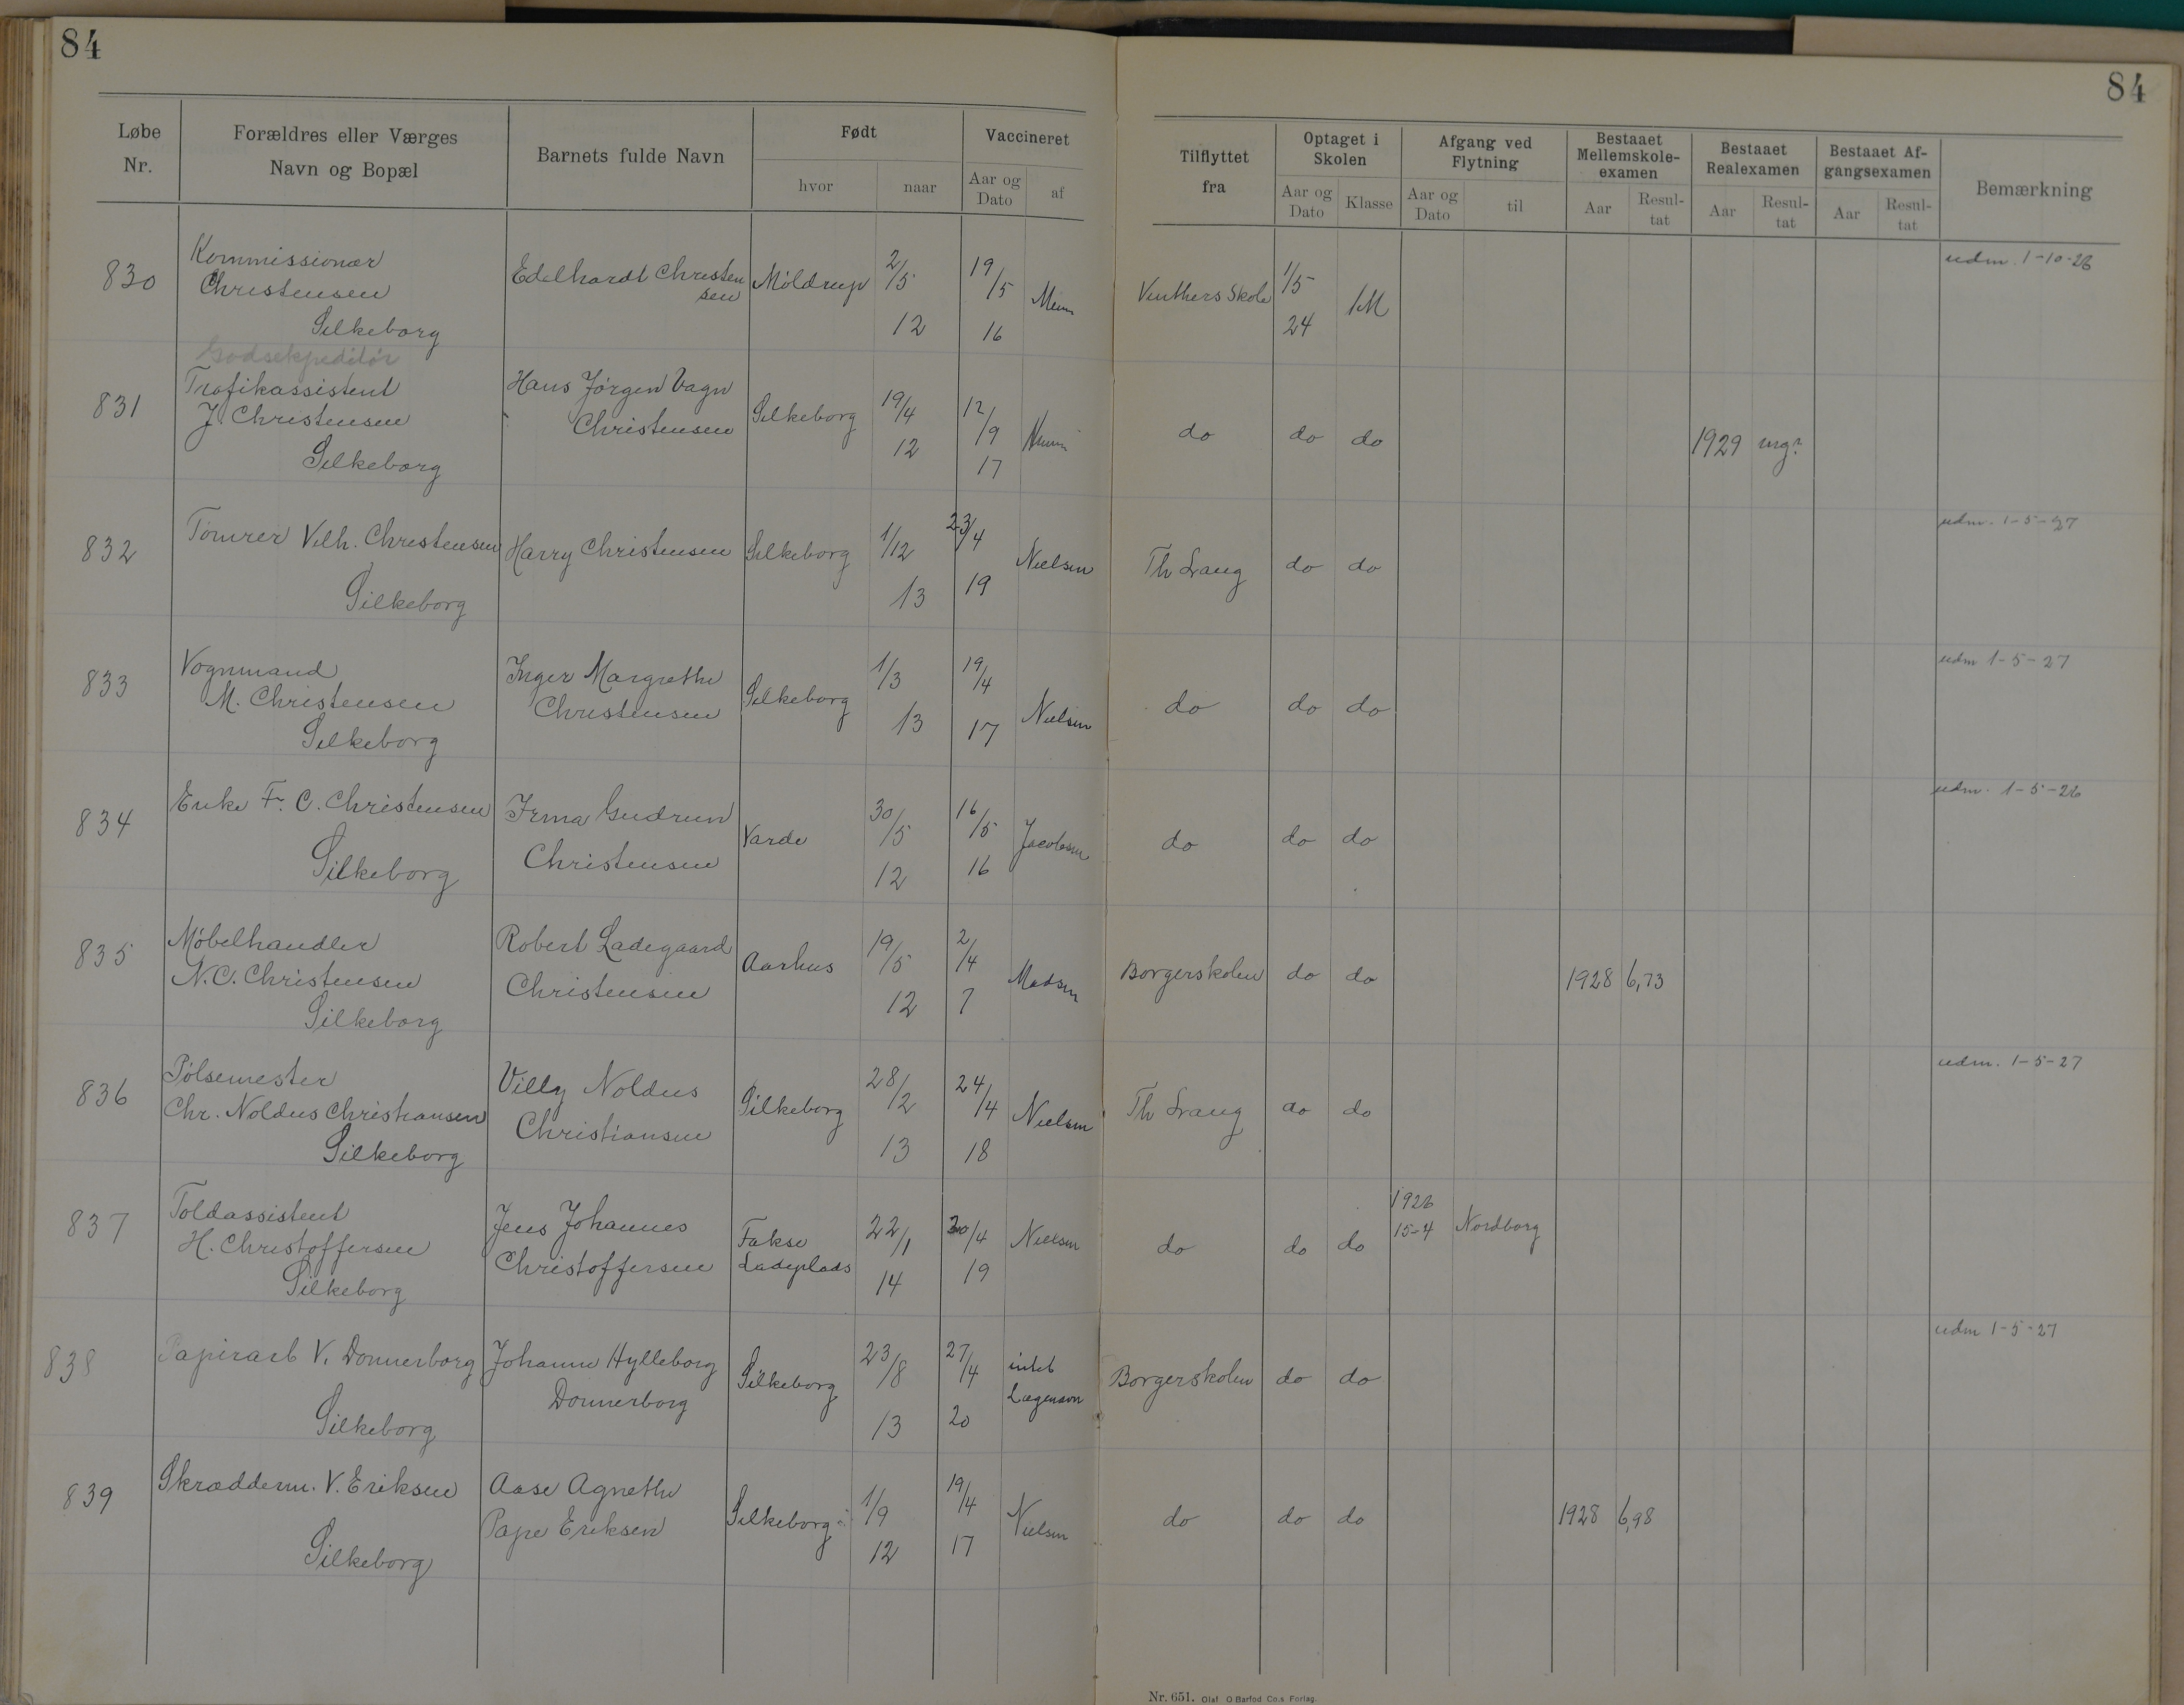 84
84
Løbe Nr.
Forældres eller Værges Navn og Bopæl
Barnets fulde Navn
Født
hvor
naar
Vaccineret
Aar og Dato
af
Tilflyttet fra
Optaget i Skolen
Aar og Dato
Klasse
Afgang ved Flytning
Aar og Dato
til
Bestaaet Mellemskole-examen
Aar
Resul-tat
Bestaaet Realexamen
Aar
Resul-tat
Bestaaet Af-gangsexamen
Aar
Resul-tat
Bemærkning
830 Kommissionær Christensen Silkeborg Edelhardt Christensen Möldrup 2/5 12 19/5 16 1/5 24 1M udm. 1-10-26
Godsekspeditör
831 Trafikassistent J. Christensen Silkeborg Hans Jörgen Vagn Christensen Silkeborg 19/4 12 12/9 17 do do do 1929 mg?
832 Tömrer Vilh. Christensen Silkeborg Harry Christensen Silkeborg 1/12 13 23/4 19 Nielsen Th Lang do do udm. 1-5-27
833 Vognmand M. Christensen Silkeborg Inger Margrethe Christensen Silkeborg 1/3 13 19/4 17 Nielsen do do do udm 1-5-27
834 Enke Fr. C. Christensen Silkeborg Irma Gudrun Christensen Varde 30/5 12 16/5 16 Jacobsen do do do udm. 1-5-26
835 Möbelhandler N.C. Christensen Silkeborg Robert Ladegaard Christensen Aarhus 19/5 12 2/4 7 Madsen Borgerskolen do do 1928 6,73
836 Pölsemester Chr. Noldus Christiansen Silkeborg Villy Noldus Christiansen Silkeborg 28/2 13 24/4 18 Nielsen Th Lang do do udm. 1-5-27
837 Toldassistent H. Christoffersen Silkeborg Jens Johannes Christoffersen Fakse Ladeplads 22/1 14 30/4 19 Nielsen do do do 1926 15-4 Nordborg
838 Papirarb V. Donnerborg Silkeborg Johanne Hylleborg Donnerborg Silkeborg 23/8 13 27/4 20 intet Lægenavn Borgerskolen do do udm 1-5-27
839 Skrædderm. V. Eriksen Silkeborg Aase Agnethe Pape Eriksen Silkeborg 1/9 12 19/4 17 Nielsen do do do 1928 6,98
Nr. 651. Olaf O Barfod Co.s Forlag.